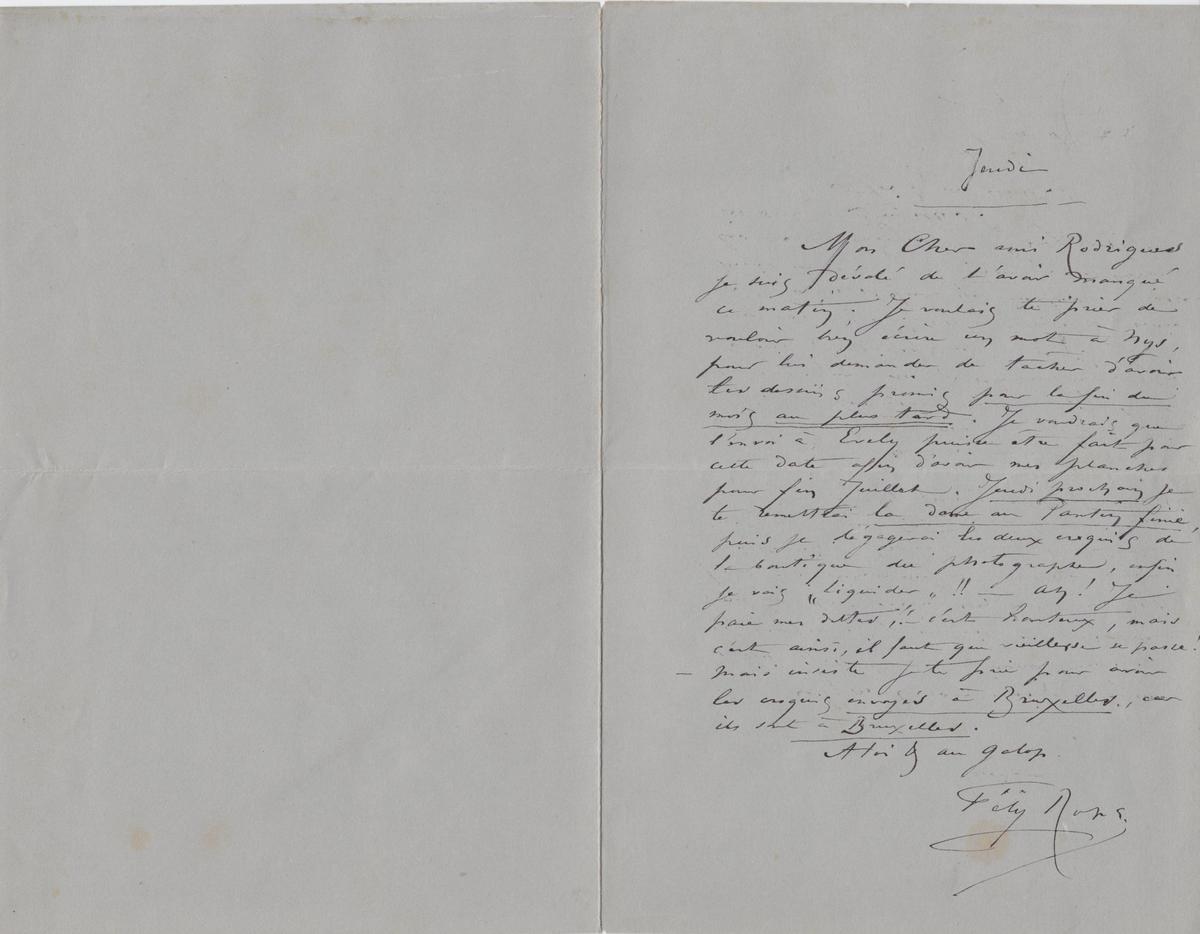 Jeudi
Mon Cher ami Rodrigues
Je suis désolé de t'avoir manqué
ce matin. Je voulais te prier de
vouloir bien écrire un mot à Nys,
pour lui demander de tacher d'avoir
les dessins promis pour la fin du
mois au plus tard. Je voudrais que
l'envoi à Evely puisse être fait pour
cette date afin d'avoir mes planches
pour fin Juillet. Jeudi prochain je
te remettrai la dame au Pantin finie,
puis je dégagerai les deux croquis de
la boutique du photographe, enfin
je vais „liquider„!! — Ah! Je
paie mes dettes,!! c'est honteux, mais
c'est ainsi, il faut que vieillesse se passe!
— Mais insiste je te prie pour avoir
les croquis envoyés à Bruxelles, car
ils sont à Bruxelles.
A toi & au galop
Fély Rops.